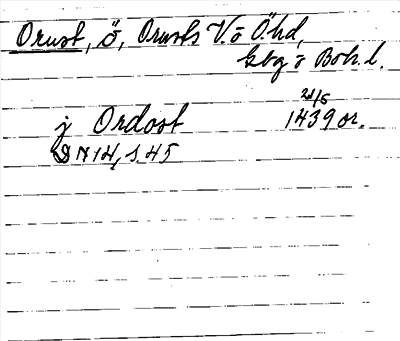 Orust, ö, Orusts V. o Ö. hd,
kbg o Boh. l.
24/6
j Ordost 1439 or.
DN 14, s. 45